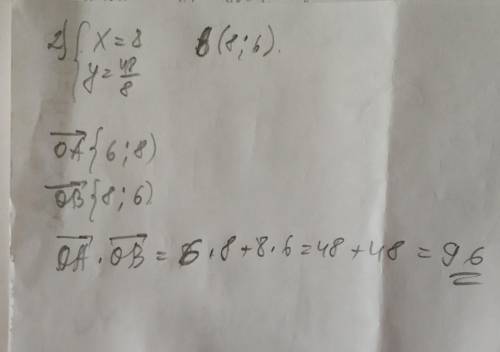 2) { x = 8    B(8; 6).
y = 48/8
OA {6; 8)
OB {8; 6)
OA · OB = 6 · 8 + 8 · 6 = 48 + 48 = 96